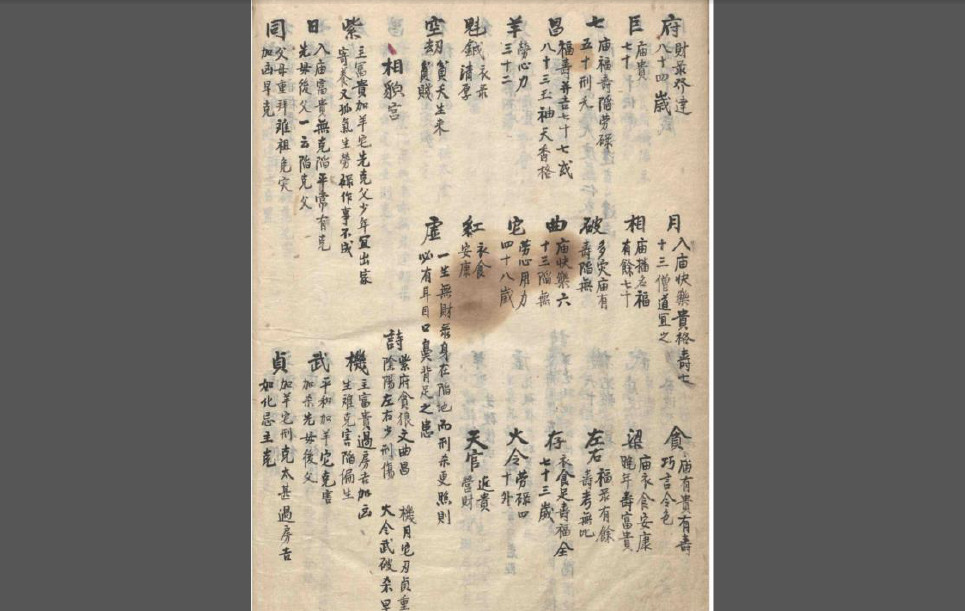 府 財祿発達 八十四歲
月 入庙快樂貴格壽七十三僧道宜之
貪 庙有貴有壽 巧言令色
巨 庙貴 七十
相 庙播名福有餘七十
梁 庙衣食安康 晚年壽富貴
七 庙福壽陷劳碌 五十刑夭
破 多灾庙有壽陷無
左右 福祿有餘 壽考無比
昌 福壽并吉七十七或八十三玉袖天香格
曲 庙快樂六十三陷無
存 衣食足壽福全 七十三歲
羊 勞心力 三十二
陀 劳心用力 四十八歲
火令 劳碌四十外
魁鉞 衣祿清厚
紅 衣食安康
天官 近貴 營財
空劫 貧夭生來貧賤
虛 一生無財祿身在陷地而刑杀更照則必有耳目口鼻背足之患
相貌宮
詩 紫府貪狼文曲昌 機月陀刃貞重
陰陽左右少刑傷 火令武破杀早
紫 主富貴加羊陀先克父少年宜出家 寄养又孤氣生劳碌作事不成
機 主富貴過房吉加凶生難克害陷偏生
日 入庙富貴無克陷平常有克 先母後父一云陷克父
武 平和加羊陀克害 加杀先母後父
同 父母重拜难祖危灾 加凶早克
貞 加羊陀刑克太甚過房吉 加化忌主克